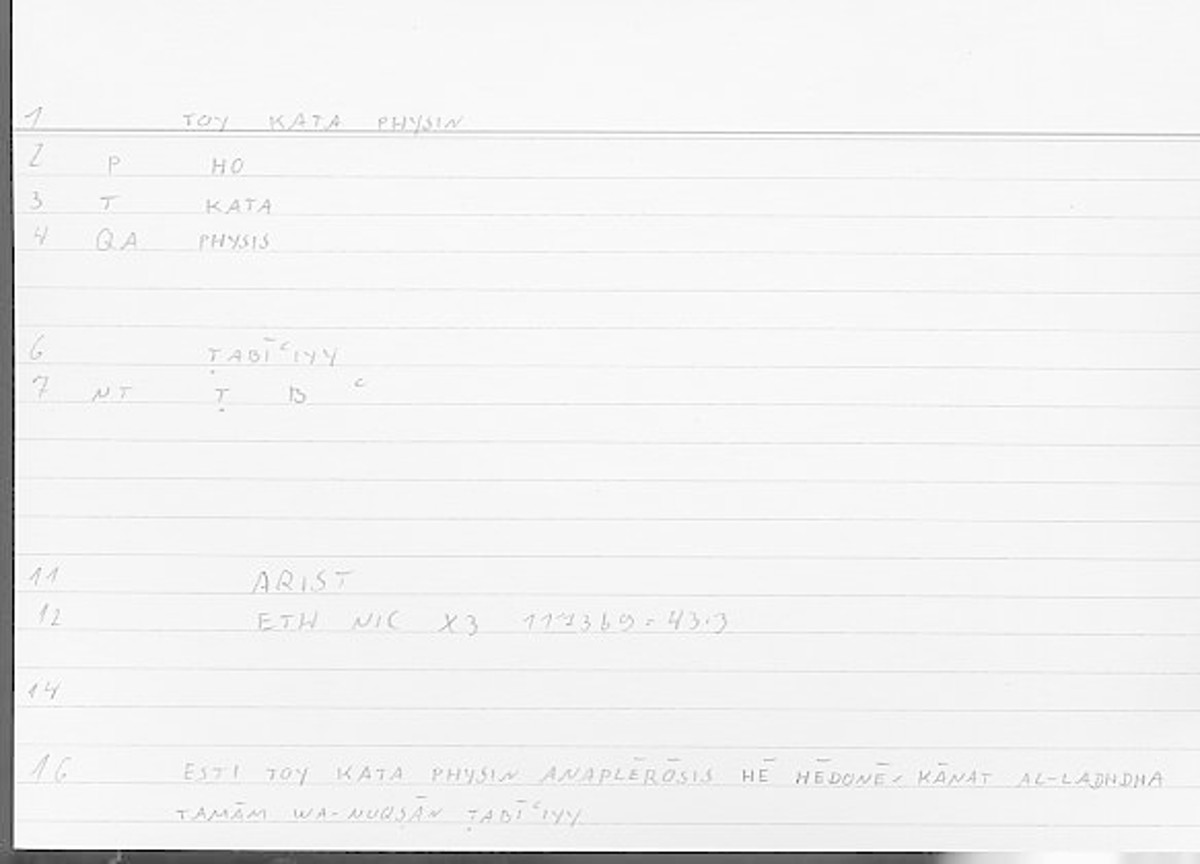 1 TOY KATA PHYSIN
2 P HO
3 T KATA
4 QA PHYSIS
6 ṬABĪʿIYY
7 NT Ṭ B ʿ
11 ARIST
12 ETH NIC X3
14
16 ESTI TOY KATA PHYSIN ANAPLĒRŌSIS HĒ HĒDONĒ KĀNAT AL-LADHDHA
TAMĀM WA-NUQṢĀN ṬABĪʿIYY